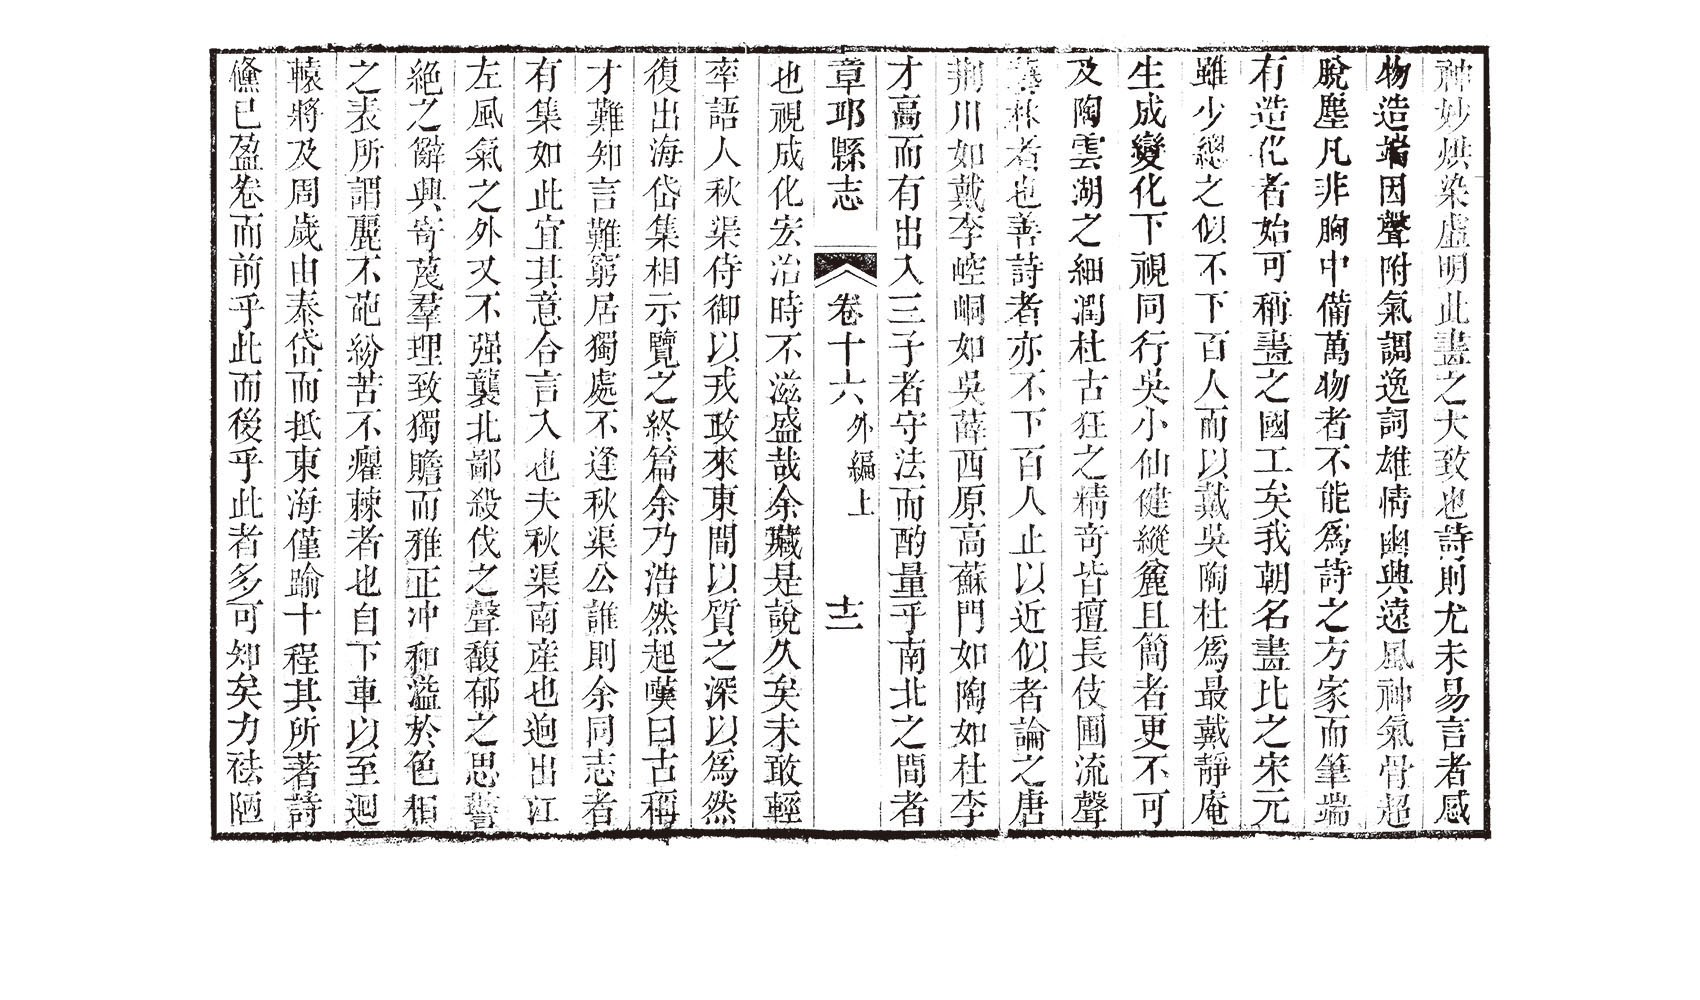 神妙烘染虛明此畫之大致也詩則尤未易言者感
物造端因聲附氣調逸詞雄情幽興遠風神氣骨超
脫塵凡非胸中備萬物者不能爲詩之方家而筆端
有造化者始可稱畫之國工矣我朝名畫比之宋元
雖少總之似不下百人而以戴吳陶杜爲最戴靜庵
生成變化下視同行吳小仙健縱麄且簡者更不可
及陶雲湖之細潤杜古狂之精奇皆擅長伎圃流聲
藝林者也善詩者亦不下百人止以近似者論之唐
荆川如戴李崆峒如吳薛西原高蘇門如陶如杜李
才高而有出入三子者守法而酌量乎南北之間者
章邱縣志 卷十六 外編上 十二
也視成化宏治時不滋盛哉余藏是說久矣未敢輕
率語人秋渠侍御以戎政來東間以質之深以爲然
復出海岱集相示覽之終篇余乃浩然起嘆曰古稱
才難知言難窮居獨處不逢秋渠公誰則余同志者
有集如此宜其意合言入也夫秋渠南産也逈出江
左風氣之外又不强襲北鄙殺伐之聲馥郁之思警
絶之辭興寄茂羣理致獨贍而雅正冲和溢於色相
之表所謂麗不葩紛苦不癯棘者也自下車以至迴
轅將及周歲由泰岱而抵東海僅踰十程其所著詩
儻已盈卷而前乎此而後乎此者多可知矣力祛陋